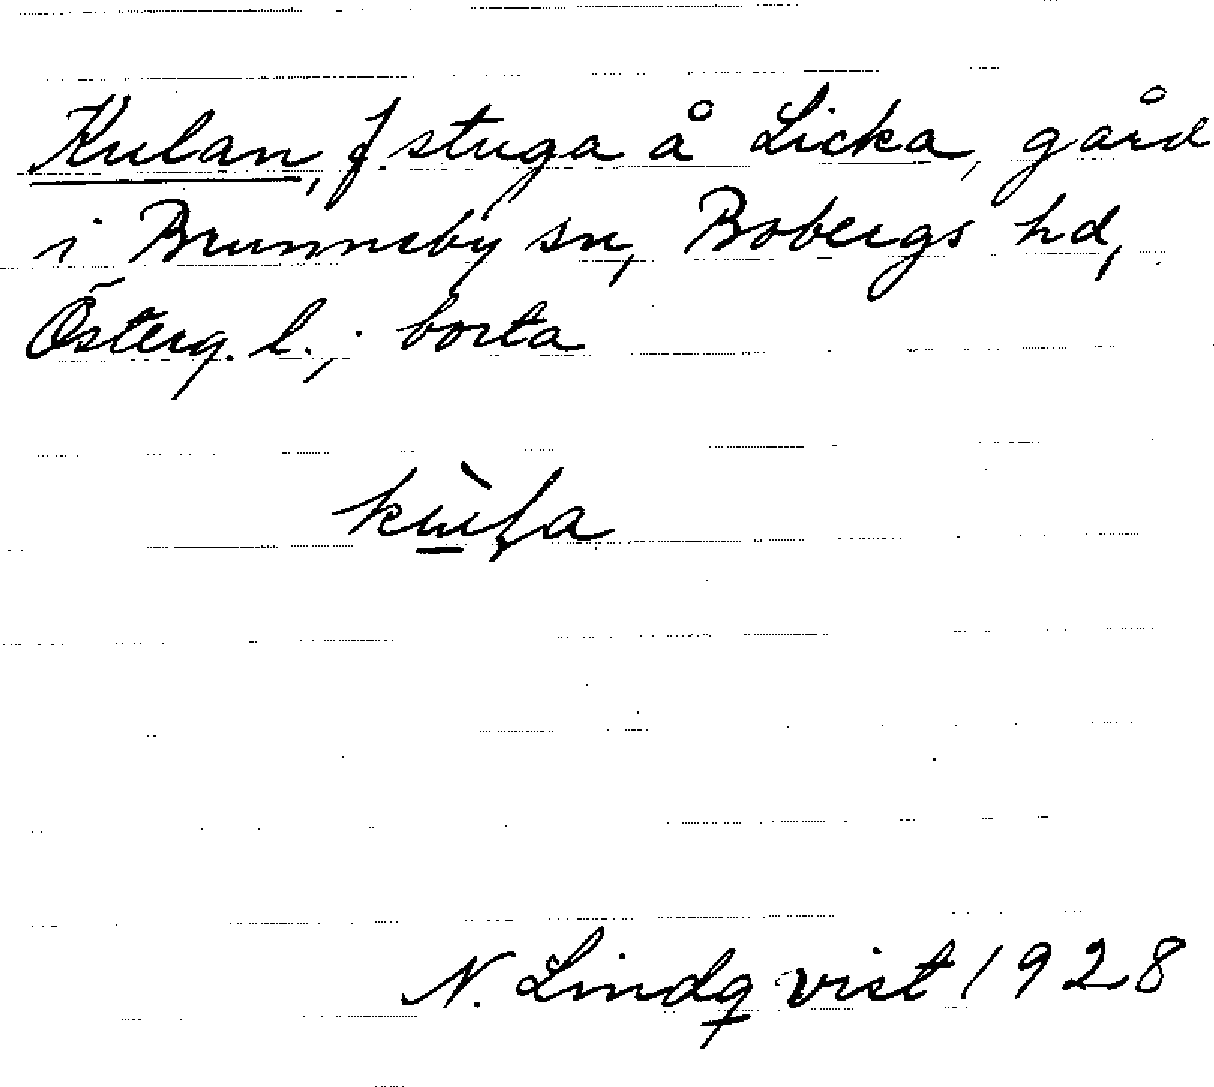 Kulan, f. stuga å Licka, gård
i Brunneby sn, Bobergs hd,
Österg. l.; borta
N. Lindqvist 1928